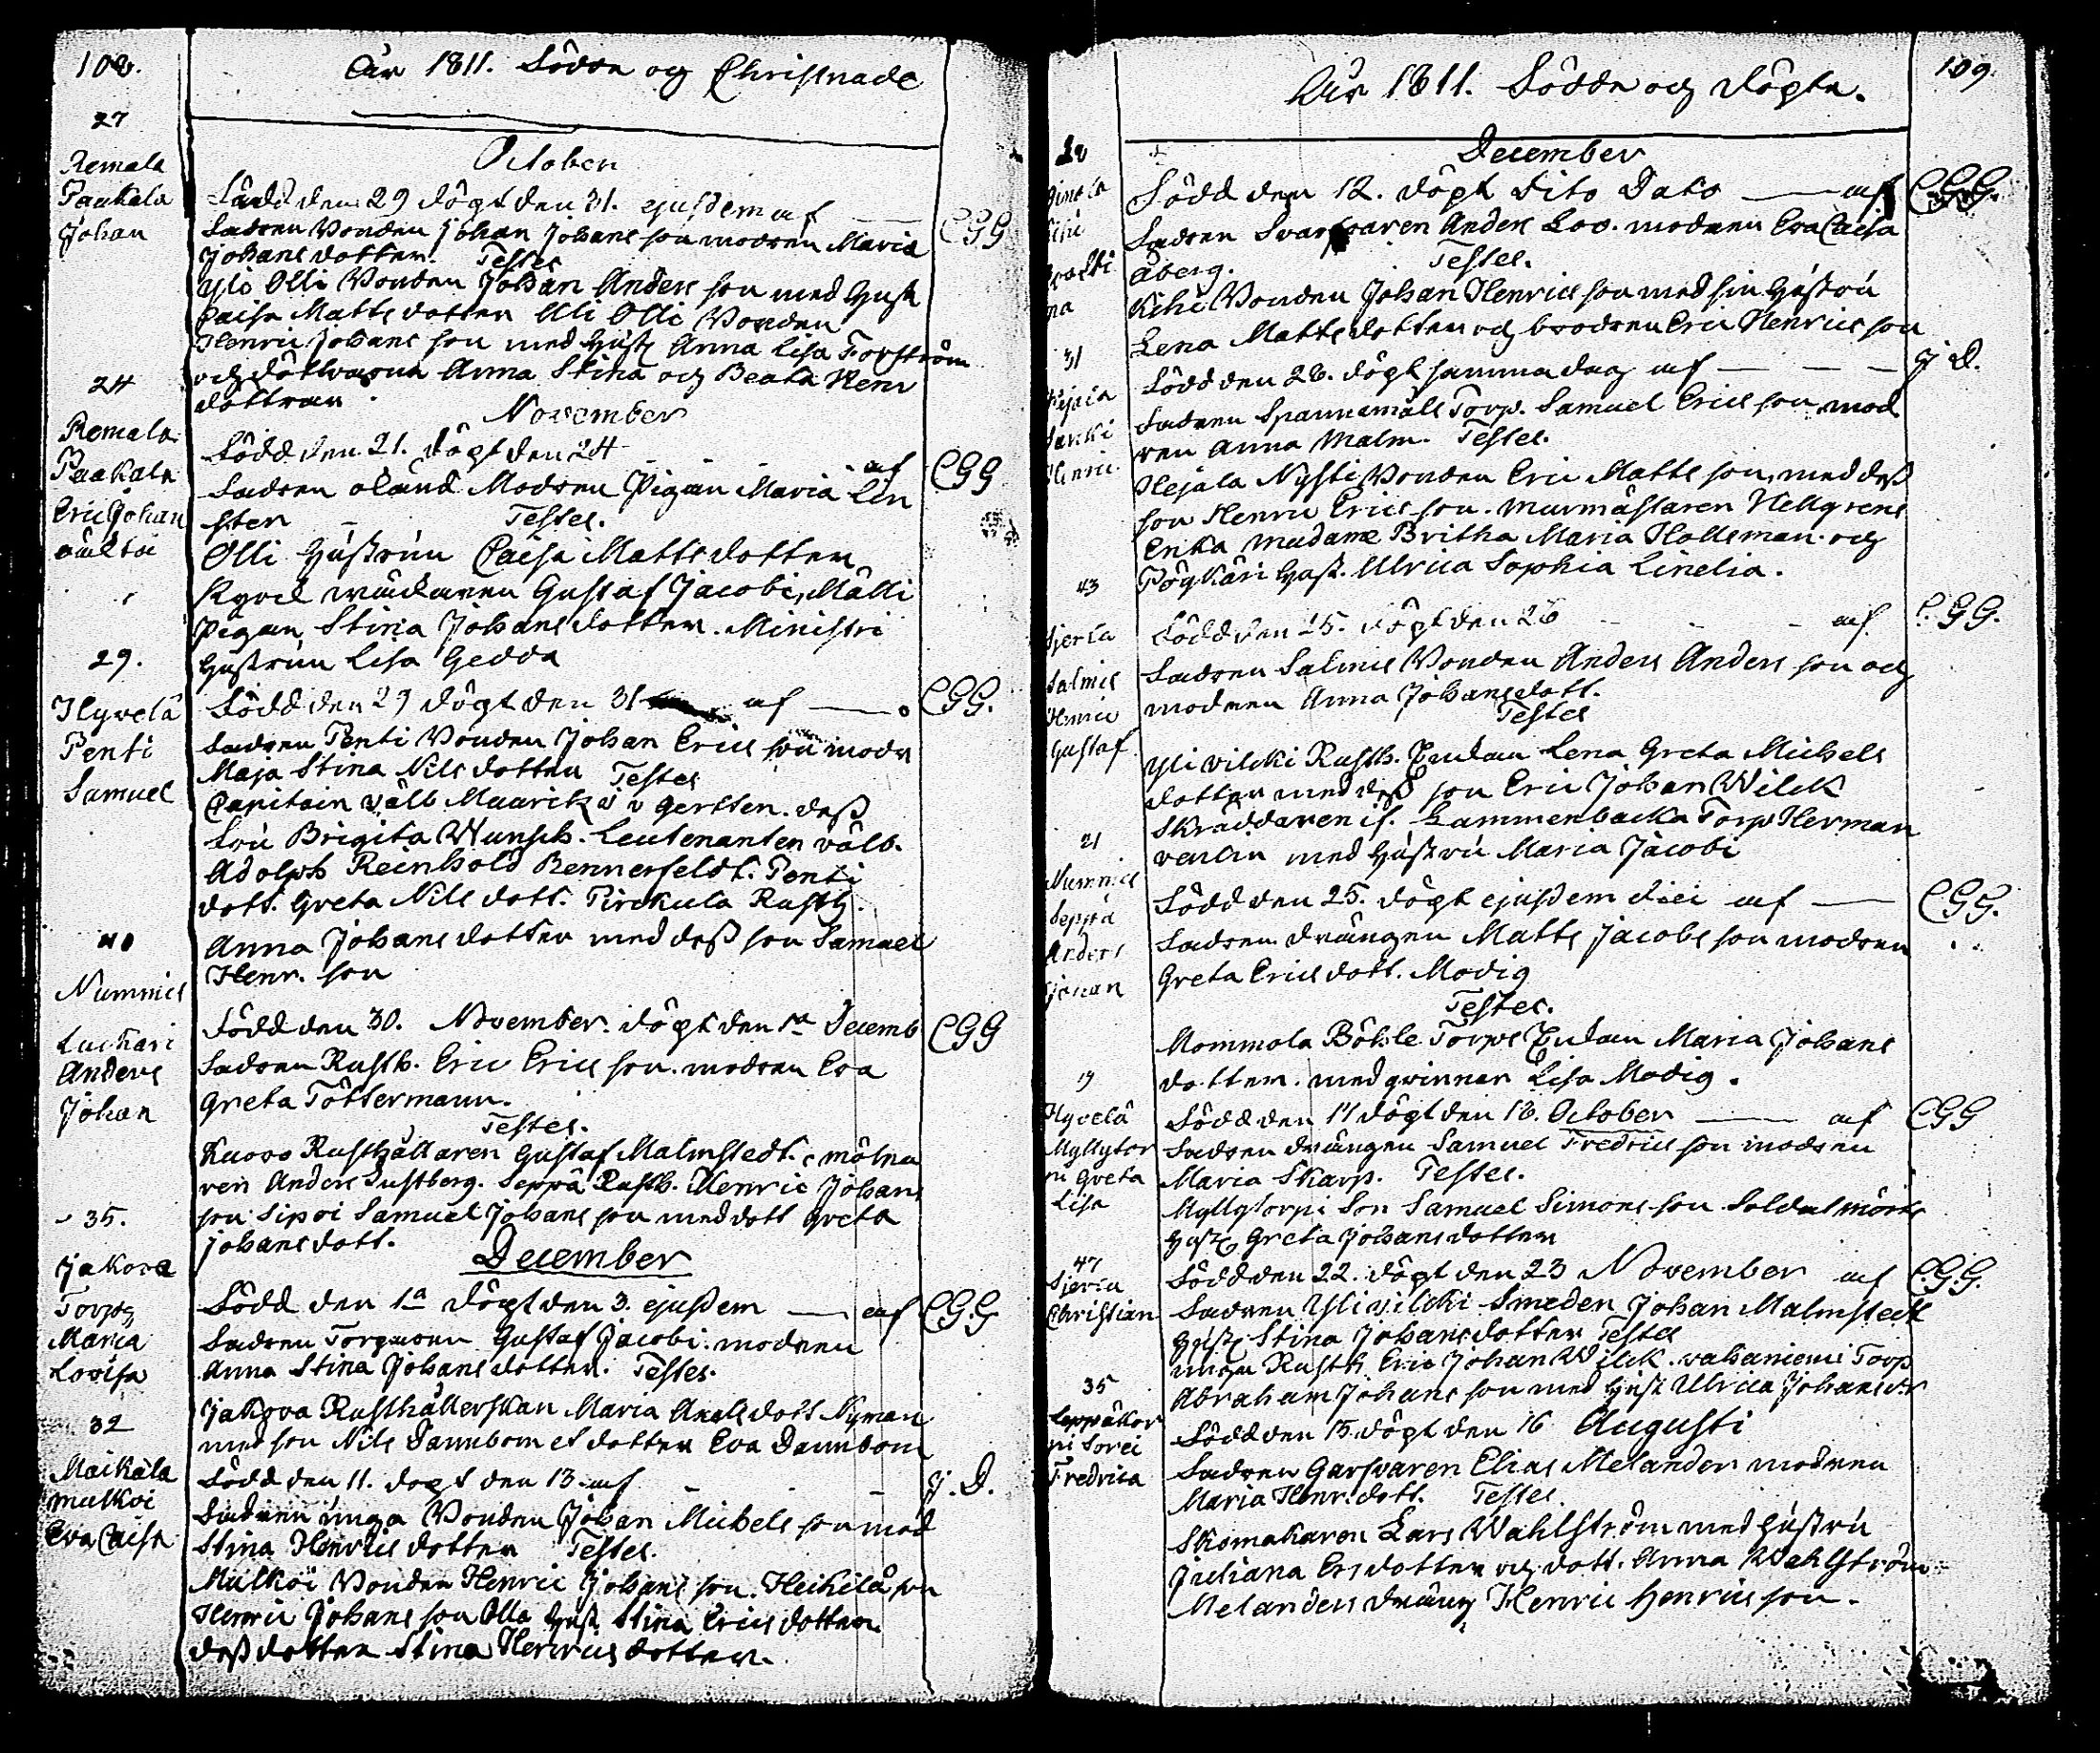 108.
År 1811. Född och Christnade
27
October
Remala
Paakala
Johan
Född den 29 dögt den 31. ejusdem af — CGG
Fadren Bonden Johan Johans son modren Maria
Johans dotter. Testes
Yli Olli Bonden Johan Anders son med Hust
Caisa Matts dotter Uli Olli Bonden
Henric Johans son med Hust Anna Lisa Forström
och döttrarna Anna Stina och Beata Henr
döttrar.
November
24
Remala
Paakala
Eric Johan
oäkta
Född den 21. dögt den 24 - - - af CGG
Fadren okänd Modren Pigan Maria Lin
sten - Testes.
Olli Hustrun Caisa Matts dotter
Gustaf Jacobs, Mälli
Pigan Stina Johans dotter. Ministri
Hustrun Lisa Gedda
29.
Hyvelä
Penti
Samuel
Född den 29 dögt den 31 af —. CGG.
Fadren Penti Bonden Johan Erics son modr
Maja Stina Nils dotter Testes
Capitain välb. Maurik v Gertten. dess
Fru Brigita Wunsch. Leutenanten välb.
Adolph Reinhold Bennerfeldt. Penti
dott. Greta Nils dott. Pirckula Rusth.
Anna Johans dotter med dess son Samuel
Henr. son
40
Nummis
Luckari
Anders
Johan
Född den 30. November. dögt den 1a Decemb CGG
Fadren Rusth. Eric Erics son. modren Eva
Greta Töttermann.
Testes.
Kuovo Rusthållaren Gustaf Malmstedt. mölna
ren Anders Lustberg. Seppä Rusth. Henric Johans
son Sipoi Samuel Johans son med dott Greta
Johans dott.
December
35.
Jakova
Torpg
Maria
Lovisa
Född den 1a dögt den 3. ejusdem — af CGG
Fadren Torparen Gustaf Jacobi. modren
Anna Stina Johans dotter. Testes.
Jakova Rusthållerskan Maria Axels dott Nyman
med son Nils Dannbom et dotter Eva Dannbom
32
Maikala
mulkoi
Eva Caisa
Född den 11. dögt den 13 af - - - J. D.
Fadren unga Bonden Johan Michels son mod
Stina Henrics dotter Testes.
Mulkoi Bonden Henric Johans son. Heikilä son
Henric Johans son Olla Hust Stina Erics dotter
dess dotter Stina Henrics dotter.
109.
År 1811. Född och dögte.
December
Född den 12. dögt Dito Dato — af CGG.
Fadren Svarfvaren Anders Lov. modren Eva Caisa
Åberg. Testes.
Kihi Bonden Johan Henrics son med sin Hustru
Lena Matts dotter och brodren Eric Henrics son
31
Henric
Född den 28. dögt samma dag af — — — J D.
Fadren Spannemåls Torp. Samuel Erics son mod
ren Anna Malm. Testes.
Hejala Nysti Bonden Eric Matts son, med dess
son Henric Erics son. murmästaren Hellgrens
Enka madame Britha Maria Holleman. och
Hust. Ulrica Sophia Linelia.
43
Sjerla
Salmis
Henric
Gustaf
Född den 25. dögt den 26 - - - af C.GG.
Fadren Salmis Bonden Anders Anders son och
modren Anna Johans dott.
Testes
Yli vilcki Rusth. Enkan Lena Greta Michels
dotter med dess son Eric Johan Wilck
Skräddaren if. Lammenbacka Torp Herman
med Hustru Maria Jacobi
21
Nummis
Seppä
Anders
Johan
Född den 25. dögt ejusdem diei af — CGG.
Fadren drängen Matts Jacobs son modren
Greta Erics dott. Modig
Testes.
Mommola Böhle Torps Enkan Maria Johans
dotter. med qvinnan Lisa Modig.
19
Hyvelä
Myllytor
pi Greta
Lisa
Född den 17 dögt den 18. October — af CGG
Fadren drängen Samuel Fredrics son modren
Maria Skarp. Testes.
Myllytorpi Son Samuel Simons son Soldat
Hust Greta Johans dotter
47
Sjerla
Christian
Född den 22. dögt den 23 November af CGG.
Fadren Yli vilcki Smeden Johan Malmstedt
Hust Stina Johans dotter Testes
unga Rusth. Eric Johan Wilck. vahaniemi Torp
Abraham Johans son med Hust Ulrica Johans dr
35
Leppäkor
pi Sorci
Fredrica
Född den 15 dögt den 16 Augusti
Fadren Garfvaren Elias Melander modren
Maria Henr. dott. Testes.
Skomakaren Lars Wahlström med Hustru
Juliana Ers dotter och dott. Anna Wahlström
Melanders dräng Henric Henrics son.